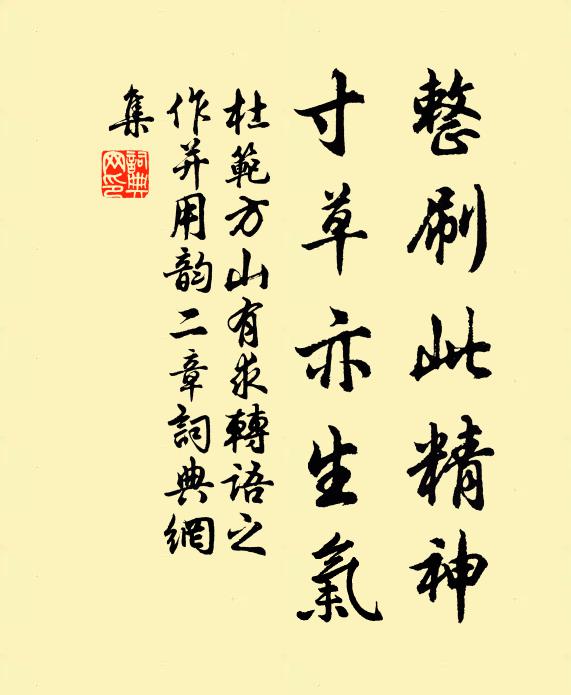 整刷此精神
寸草亦生氣
杜範方山有求轉語之
作并用韵二章詞典網
集
詞典
网印